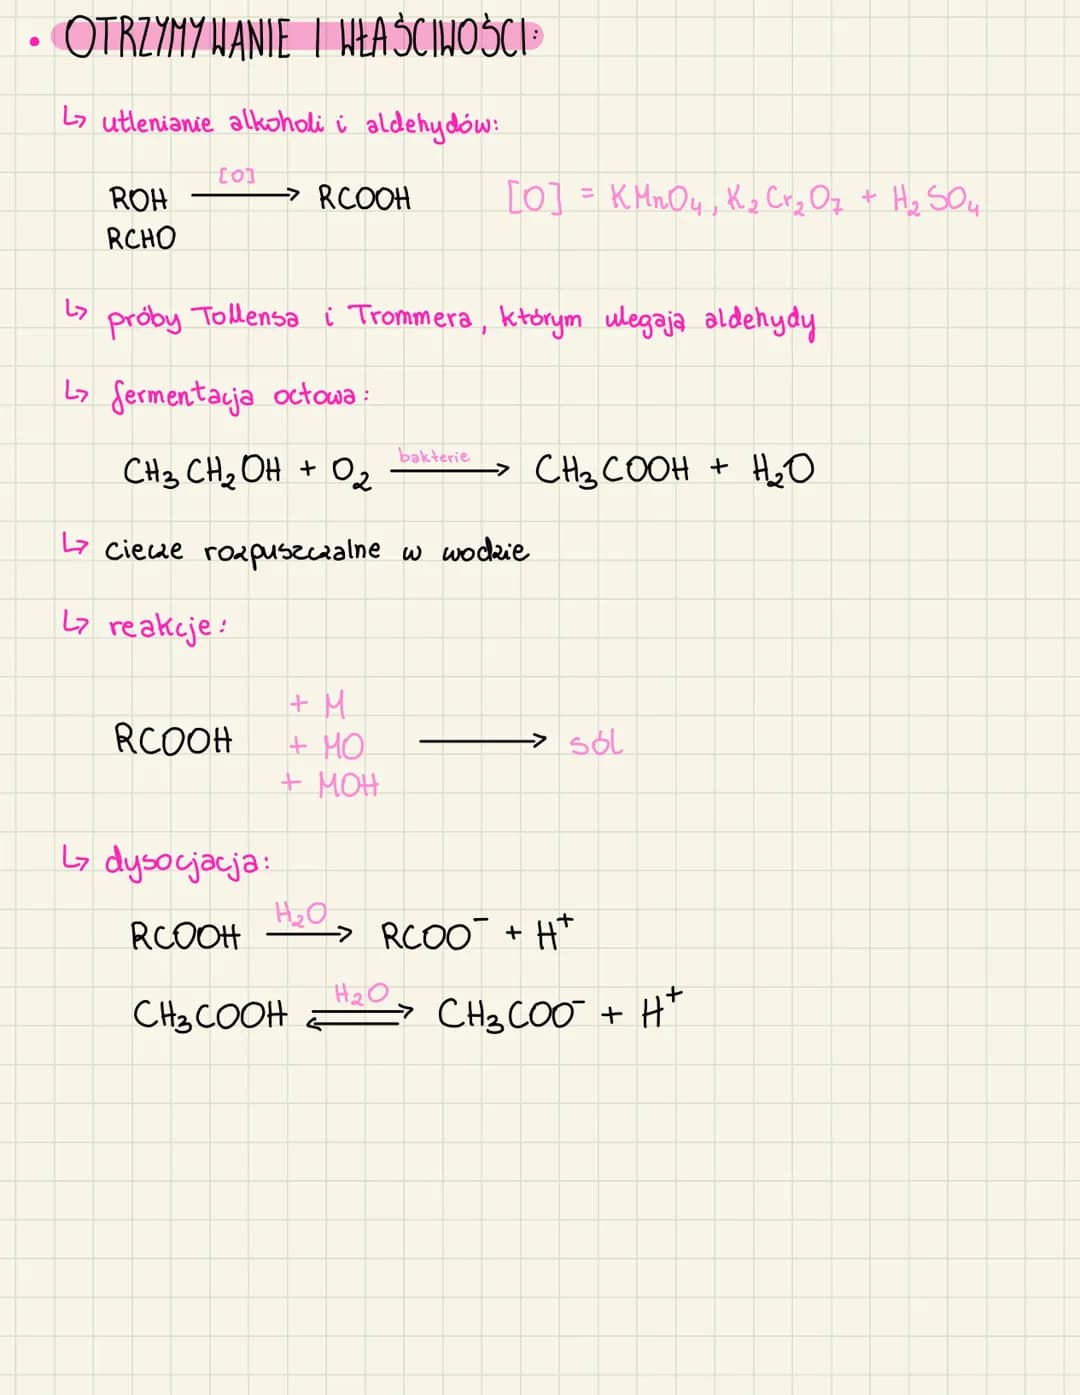 • OTRZYMYWANIE I WŁAŚCIWOŚCI:
↳ utlenianie alkoholi i aldehydów:
ROH [O] → RCOOH [O] = KMnO₄, K₂Cr₂O₇ + H₂SO₄
RCHO
↳ próby Tollensa i Trommera, którym ulegają aldehydy
↳ fermentacja octowa:
CH₃CH₂OH + O₂ bakterie → CH₃COOH + H₂O
↳ ciecze rozpuszczalne w wodzie
↳ reakcje:
+ M
RCOOH + MO → sól
+ MOH
↳ dysocjacja:
RCOOH H₂O → RCOO⁻ + H⁺
CH₃COOH H₂O ⇄ CH₃COO⁻ + H⁺